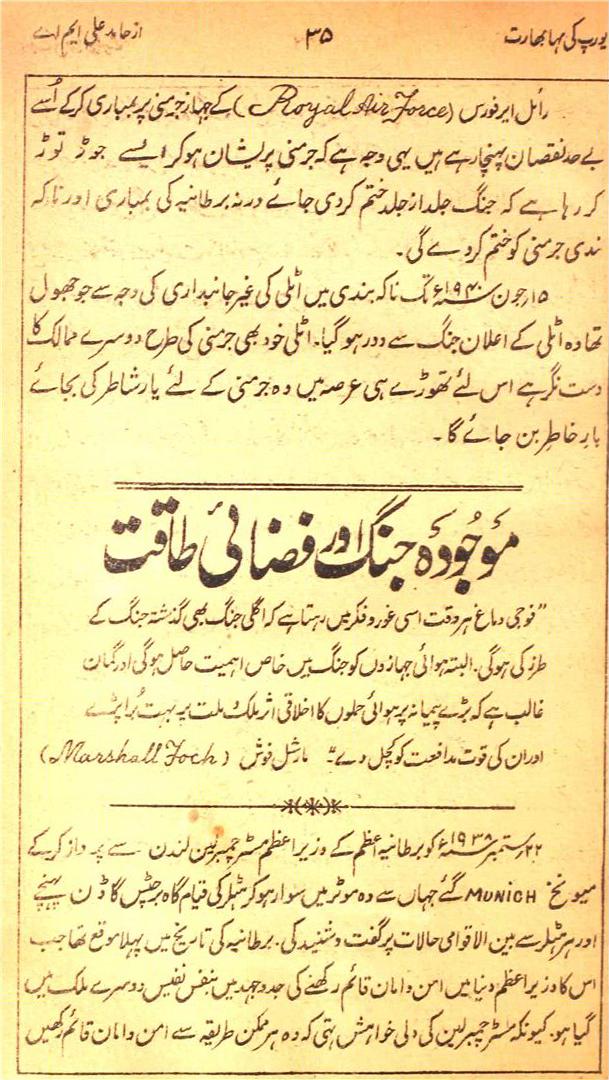 یورپ کی مہابھارت ۳۵ از حامد علی ایم اے
رائل ایر فورس (Royal Air Force) کے جہاز جرمنی پر بمباری کر کے اُسے
بے حد نقصان پہنچا رہے ہیں یہی وجہ ہے کہ جرمنی پریشان ہو کر ایسے جوڑ توڑ
کر رہا ہے کہ جنگ جلد از جلد ختم کر دی جائے ورنہ برطانیہ کی بمباری اور ناکہ
بندی جرمنی کو ختم کر دے گی۔
۱۵ رجون ۱۹۴۰ء تک ناکہ بندی میں اٹلی کی غیر جانبداری کی وجہ سے جو جھول
تھا وہ اٹلی کے اعلان جنگ سے دور ہو گیا۔ اٹلی خود بھی جرمنی کی طرح دوسرے ممالک کا
دست نگر ہے اس لئے تھوڑے ہی عرصہ میں وہ جرمنی کے لئے یارِ شاطر کی بجائے
بارِ خاطر بن جائے گا۔
موجودہ جنگ اور فضائی طاقت
"فوجی دماغ ہر وقت اسی غور و فکر میں رہتا ہے کہ اگلی جنگ بھی گذشتہ جنگ کے
طرز کی ہوگی۔ البتہ ہوائی جہازوں کو جنگ میں خاص اہمیت حاصل ہوگی اور گمان
غالب ہے کہ بڑے پیمانہ پر ہوائی حملوں کا اخلاقی اثر ملک و ملت پر بہت بُرا پڑے
اور ان کی قوت مدافعت کو کچل دے" مارشل فوش (Marshall Foch)
۲۲ ستمبر ۱۹۳۸ء کو برطانیہ اعظم کے وزیر اعظم مسٹر چمبرلین لندن سے پرواز کر کے
میونخ MUNICH گئے جہاں سے وہ موٹر میں سوار ہو کر ہٹلر کی قیام گاہ برچٹس گاڈن پہنچے
اور ہر ہٹلر سے بین الاقوامی حالات پر گفت و شنید کی۔ برطانیہ کی تاریخ میں پہلا موقع تھا جب
اس کا وزیر اعظم دنیا میں امن و امان قائم رکھنے کی جدوجہد میں بنفس نفیس دوسرے ملک میں
گیا ہو۔ کیونکہ مسٹر چمبرلین کی دلی خواہش تہی کہ وہ ہر ممکن طریقہ سے امن و امان قائم رکھیں